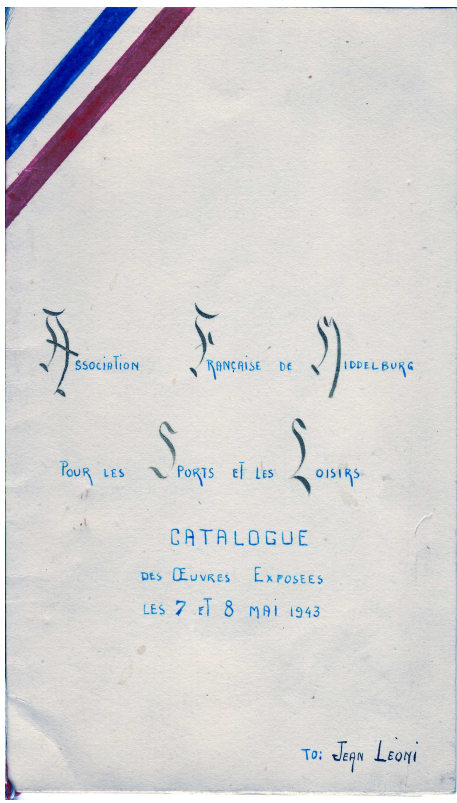 Association Française de Middelburg
Pour les Sports et les Loisirs
CATALOGUE
des Œuvres Exposées
les 7 et 8 mai 1943
To: Jean Léoni